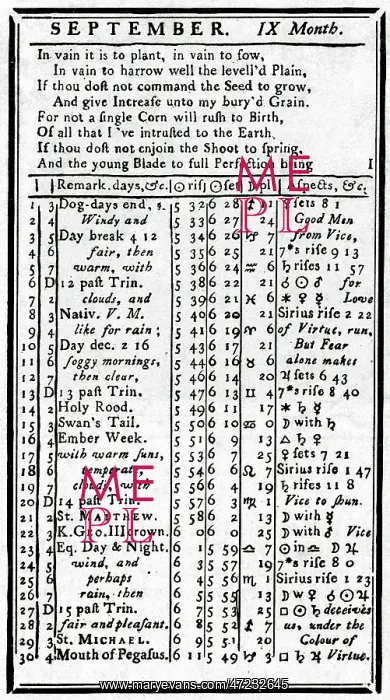 SEPTEMBER. IX Month.
In vain it is to plant, in vain to ſow,
In vain to harrow well the levell'd Plain,
If thou doſt not command the Seed to grow,
And give Increaſe unto my bury'd Grain.
For not a ſingle Corn will ruſh to Birth,
Of all that I've intruſted to the Earth,
If thou doſt not enjoin the Shoot to ſpring,
And the young Blade to full Perfection bring I
Remark. days, &c. ☉ riſ ☉ ſet D pl Aſpects, &c.
1 3 Dog-days end, 5 32 6 28 1 ſets 8 1
2 4 Windy and 5 33 6 27 24 Good Men
3 5 Day break 4 12 5 34 6 26 ♑ 7 from Vice,
4 6 fair, then 5 35 6 25 21 7*s riſe 9 13
5 7 warm, with 5 36 6 24 ♒ 6 ♄ riſes 11 57
6 D 12 paſt Trin. 5 38 6 22 21 ☌ ☉ ♂ for
7 2 clouds, and 5 39 6 21 ♓ 6 ✶ ♀ ☿ Love
8 3 Nativ. V. M. 5 40 6 20 21 Sirius riſe 2 22
9 4 like for rain; 5 41 6 19 ♈ 6 of Virtue, run,
10 5 Day dec. 2 16 5 43 6 17 21 But Fear
11 6 foggy mornings, 5 44 6 16 ♉ 6 alone makes
12 7 then clear, 5 46 6 14 20 ♃ ſets 6 43
13 D 13 paſt Trin. 5 47 6 13 ♊ 4 7*s riſe 8 40
14 2 Holy Rood. 5 49 6 11 17 ✶ ♄ ☿
15 3 Swan's Tail. 5 50 6 10 ♋ 0 ☽ with ♄
16 4 Ember Week. 5 51 6 9 13 △ ♄ ♀
17 5 with warm ſuns, 5 53 6 7 25 ♀ ſets 7 21
18 6 temperate, 5 54 6 6 ♌ 7 Sirius riſe 1 47
19 7 clouds, with 5 56 6 4 19 ♄ riſes 11 8
20 D 14 paſt Trin. 5 57 6 3 ♍ 1 Vice to ſhun.
21 2 St. MATTHEW. 5 58 6 2 13 ☽ with ☿
22 3 K. Geo. III crown. 6 0 6 0 25 ☽ with ♂ Vice
23 4 Eq. Day & Night. 6 1 5 59 ♎ 7 ☉ in ♎ ☽ ♃
24 5 wind, and 6 3 5 57 19 7*s riſe 8 0
25 6 perhaps 6 4 5 56 ♏ 1 Sirius riſe 1 23
26 7 rain, then 6 5 5 55 13 ☽ w ♀ ☌ ☉ ♃
27 D 15 paſt Trin. 6 7 5 53 25 □ ☉ ♄ deceives
28 2 fair and pleaſant. 6 8 5 52 ♐ 7 us, under the
29 3 St. MICHAEL. 6 9 5 51 20 Colour of
30 4 Mouth of Pegaſus. 6 11 5 49 ♑ 3 □ ♃ Virtue.
ME
PL
ME
PL
www.maryevans.com/47232645